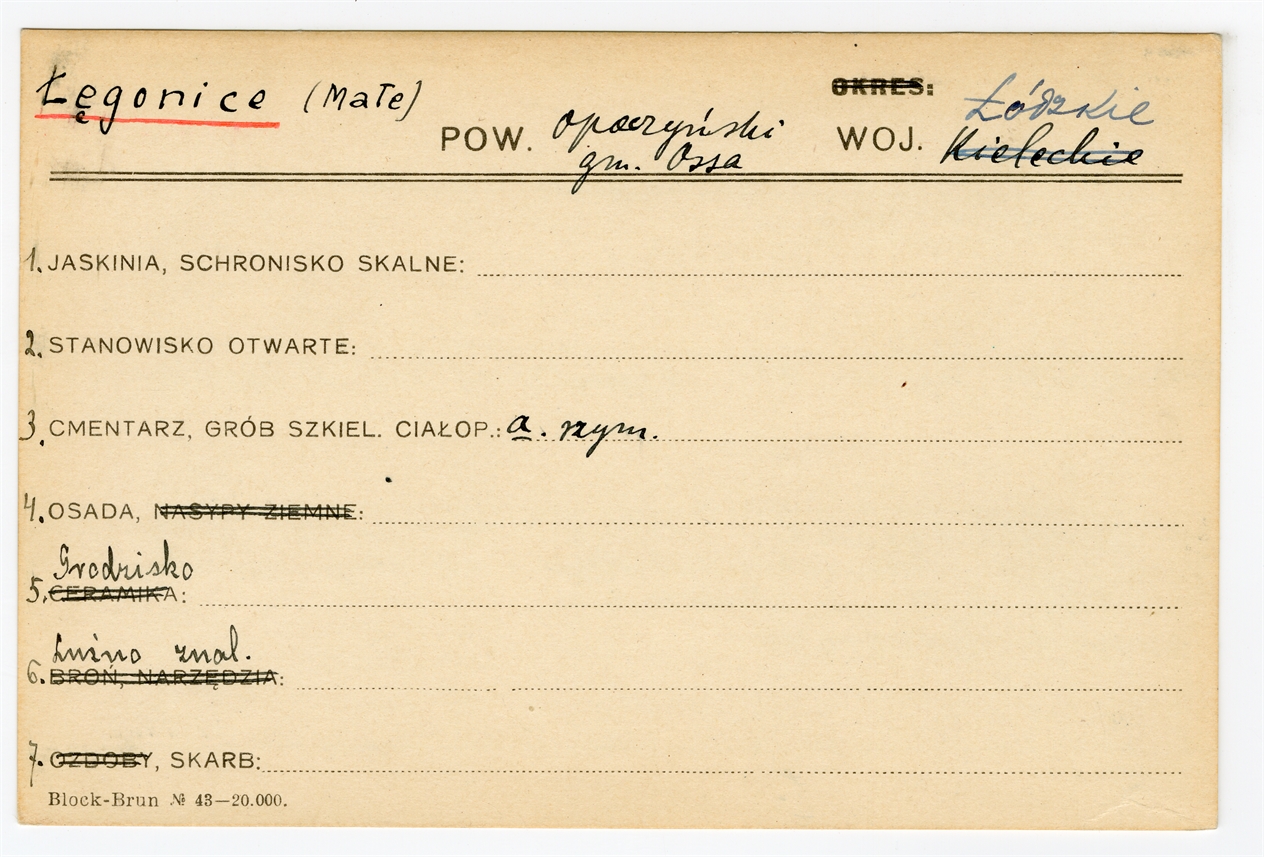 Łęgonice (Małe)
OKRES:
Łódzkie
POW. opoczyński WOJ. Kieleckie
gm. Ossa
1. JASKINIA, SCHRONISKO SKALNE:
2. STANOWISKO OTWARTE:
3. CMENTARZ, GRÓB SZKIEL. CIAŁOP.: a. rzym.
4. OSADA, NASYPY ZIEMNE:
Grodzisko
5. CERAMIKA:
Luźno znal.
6. BROŃ, NARZĘDZIA:
7. OZDOBY, SKARB:
Block-Brun № 43—20.000.